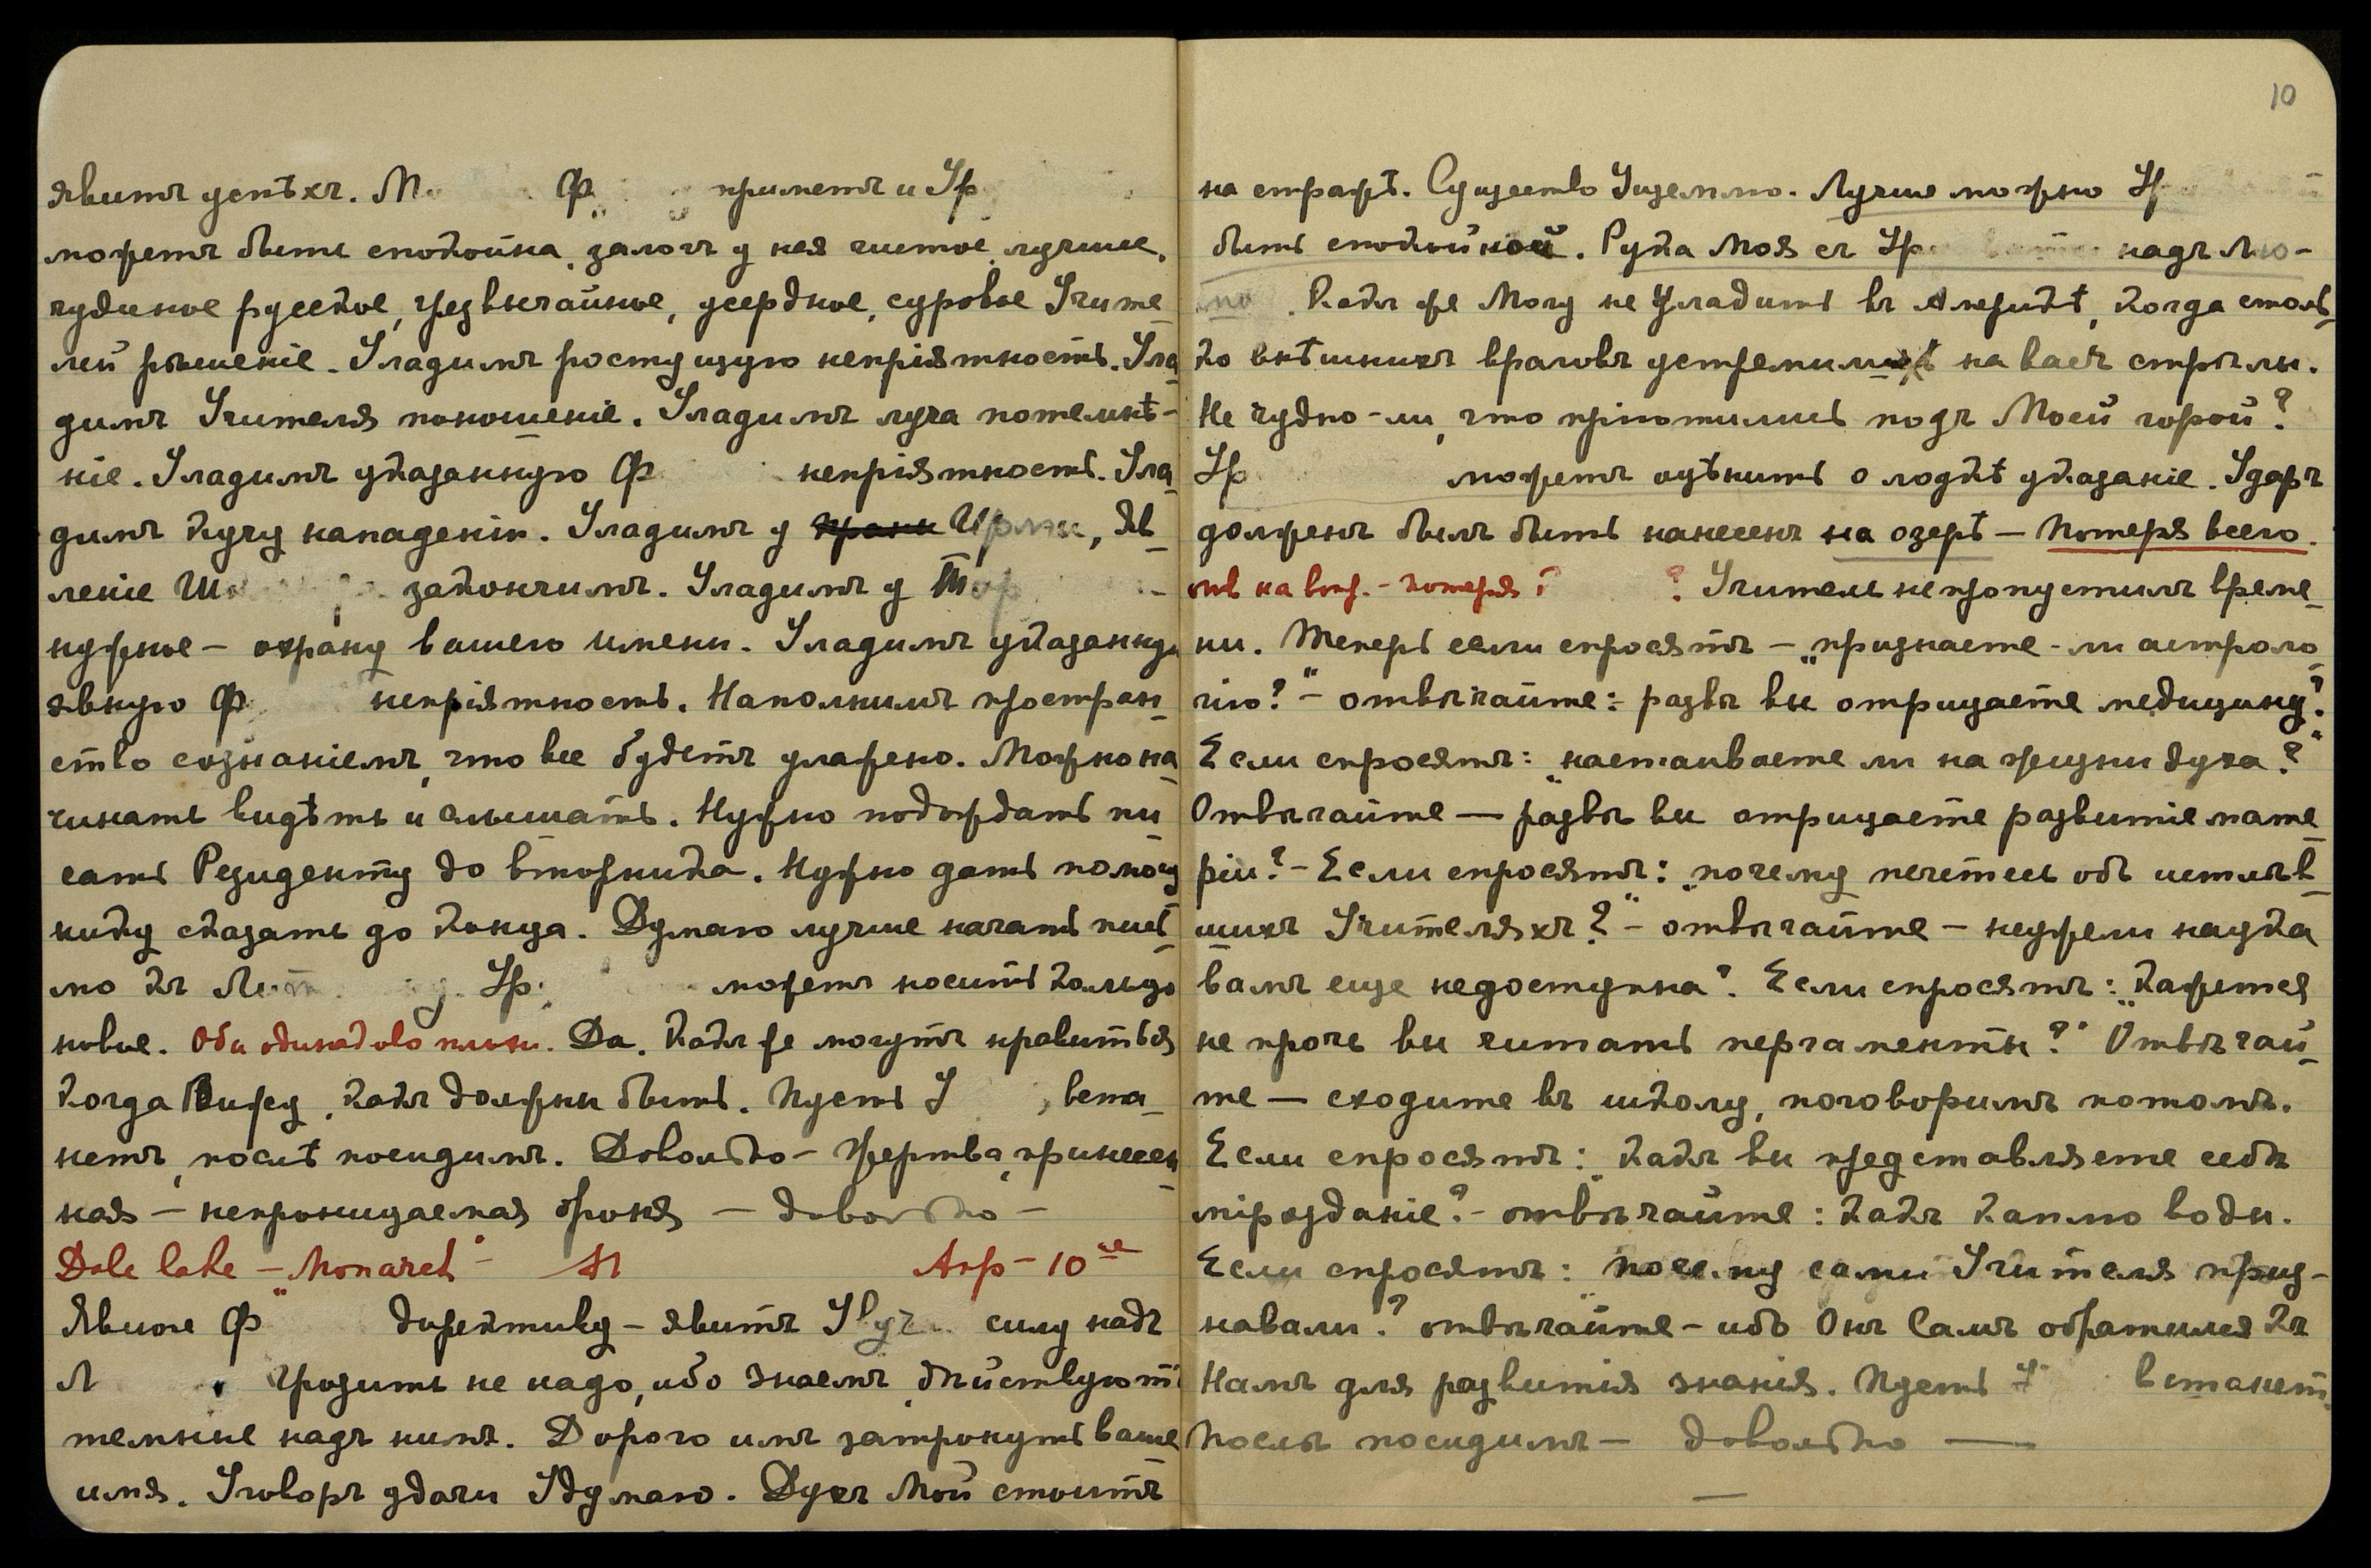 явитъ успѣхъ. М Ф приметъ и Ур
можетъ быть спокойна, залогъ у нея чистое, лучшее,
чудиное русское, чрезвычайное, усердное, суровое Учите
лей рѣшеніе. Уладимъ ростущую непріятность. Ула
димъ Учителя поношеніе. Уладимъ луча потемнѣ-
ніе. Уладимъ указанную Ф непріятность. Ула
димъ кучу нападеній. Уладимъ у , Яв
леніе закончимъ. Уладимъ у Тар -
нужное – охрану вашего имени. Уладимъ указанную
явную Ф непріятность. Наполнимъ простран
ство сознаніемъ, что все будетъ улажено. Можно на
чинать видѣть и слышать. Нужно подождать пи
сать Резиденту до вторника. Нужно дать помощ
нику сказать до конца. Думаю лучше начать пись
мо къ Ур. можетъ носить кольцо
новое. Оба одинаково плохи. Да. Какъ же могутъ нравиться
когда Вижу, какъ должны быть. Пусть У , вста
нетъ, послѣ посидимъ. Довольно – Жертва, принесен
ная – непроницаемая броня – довольно –
Dole lake – „Monarch" – Апр – 10ое
Явите Ф директиву – явитъ силу надъ
Л Грозить не надо, ибо знаемъ, дѣйствуютъ
темные надъ нимъ. Дорого имъ затронуть ваше
имя. Уговоръ удачи Удумаю. Духъ Мой стоитъ
10
на стражѣ. Существо Ущемлю. Лучше можно Ур
быть спокойной. Рука Моя съ Ур надъ Лю-
Какъ же Могу не Уладить въ Америкѣ, когда столь
ко внѣшнихъ враговъ устремили на васъ стрѣлы.
Не чудно-ли, что пріютились подъ Моей горой?
Ур можетъ оцѣнить о лодкѣ указаніе. Ударъ
долженъ былъ быть нанесенъ на озерѣ – Потеря всего.
отв на вопр. – потеря ? ? Учитель не пропустилъ време
ни. Теперь если спросятъ – „признаете-ли астроло
гію?" – отвѣчайте: развѣ вы отрицаете медицину?
Если спросятъ: „настаиваете ли на жизни духа?"
Отвѣчайте – развѣ вы отрицаете развитіе мате
ріи? – Если спросятъ: „почему печетесь объ истлѣв
шихъ Учителяхъ?" – отвѣчайте – неужели наука
вамъ еще недоступна? Если спросятъ: „кажется
не прочь вы читать пергаменты?" Отвѣчай
те – сходите въ школу, поговоримъ потомъ.
Если спросятъ: „какъ вы представляете себѣ
мірозданіе? – отвѣчайте: какъ каплю воды.
Если спросятъ: „почему сами Учителя приз-
навали? отвѣчайте – ибо Онъ Самъ обратился къ
Намъ для развитія знанія. Пусть У встанетъ
Послѣ посидимъ – довольно –